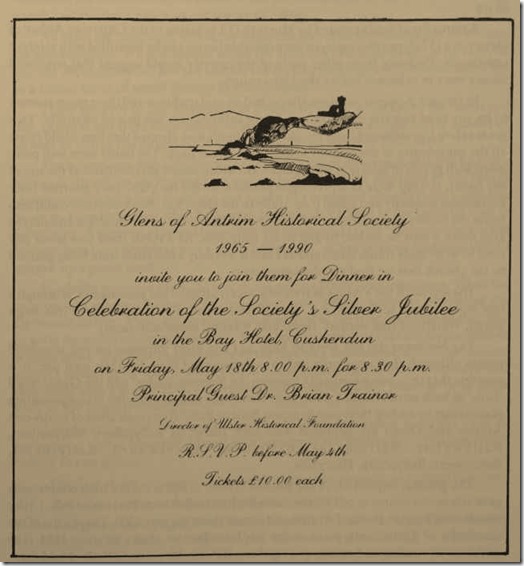 Glens of Antrim Historical Society
1965 — 1990
invite you to join them for Dinner in
Celebration of the Society's Silver Jubilee
in the Bay Hotel, Cushendun
on Friday, May 18th 8.00 p.m. for 8.30 p.m.
Principal Guest Dr. Brian Trainor
Director of Ulster Historical Foundation
R.S.V.P. before May 4th
Tickets £10.00 each